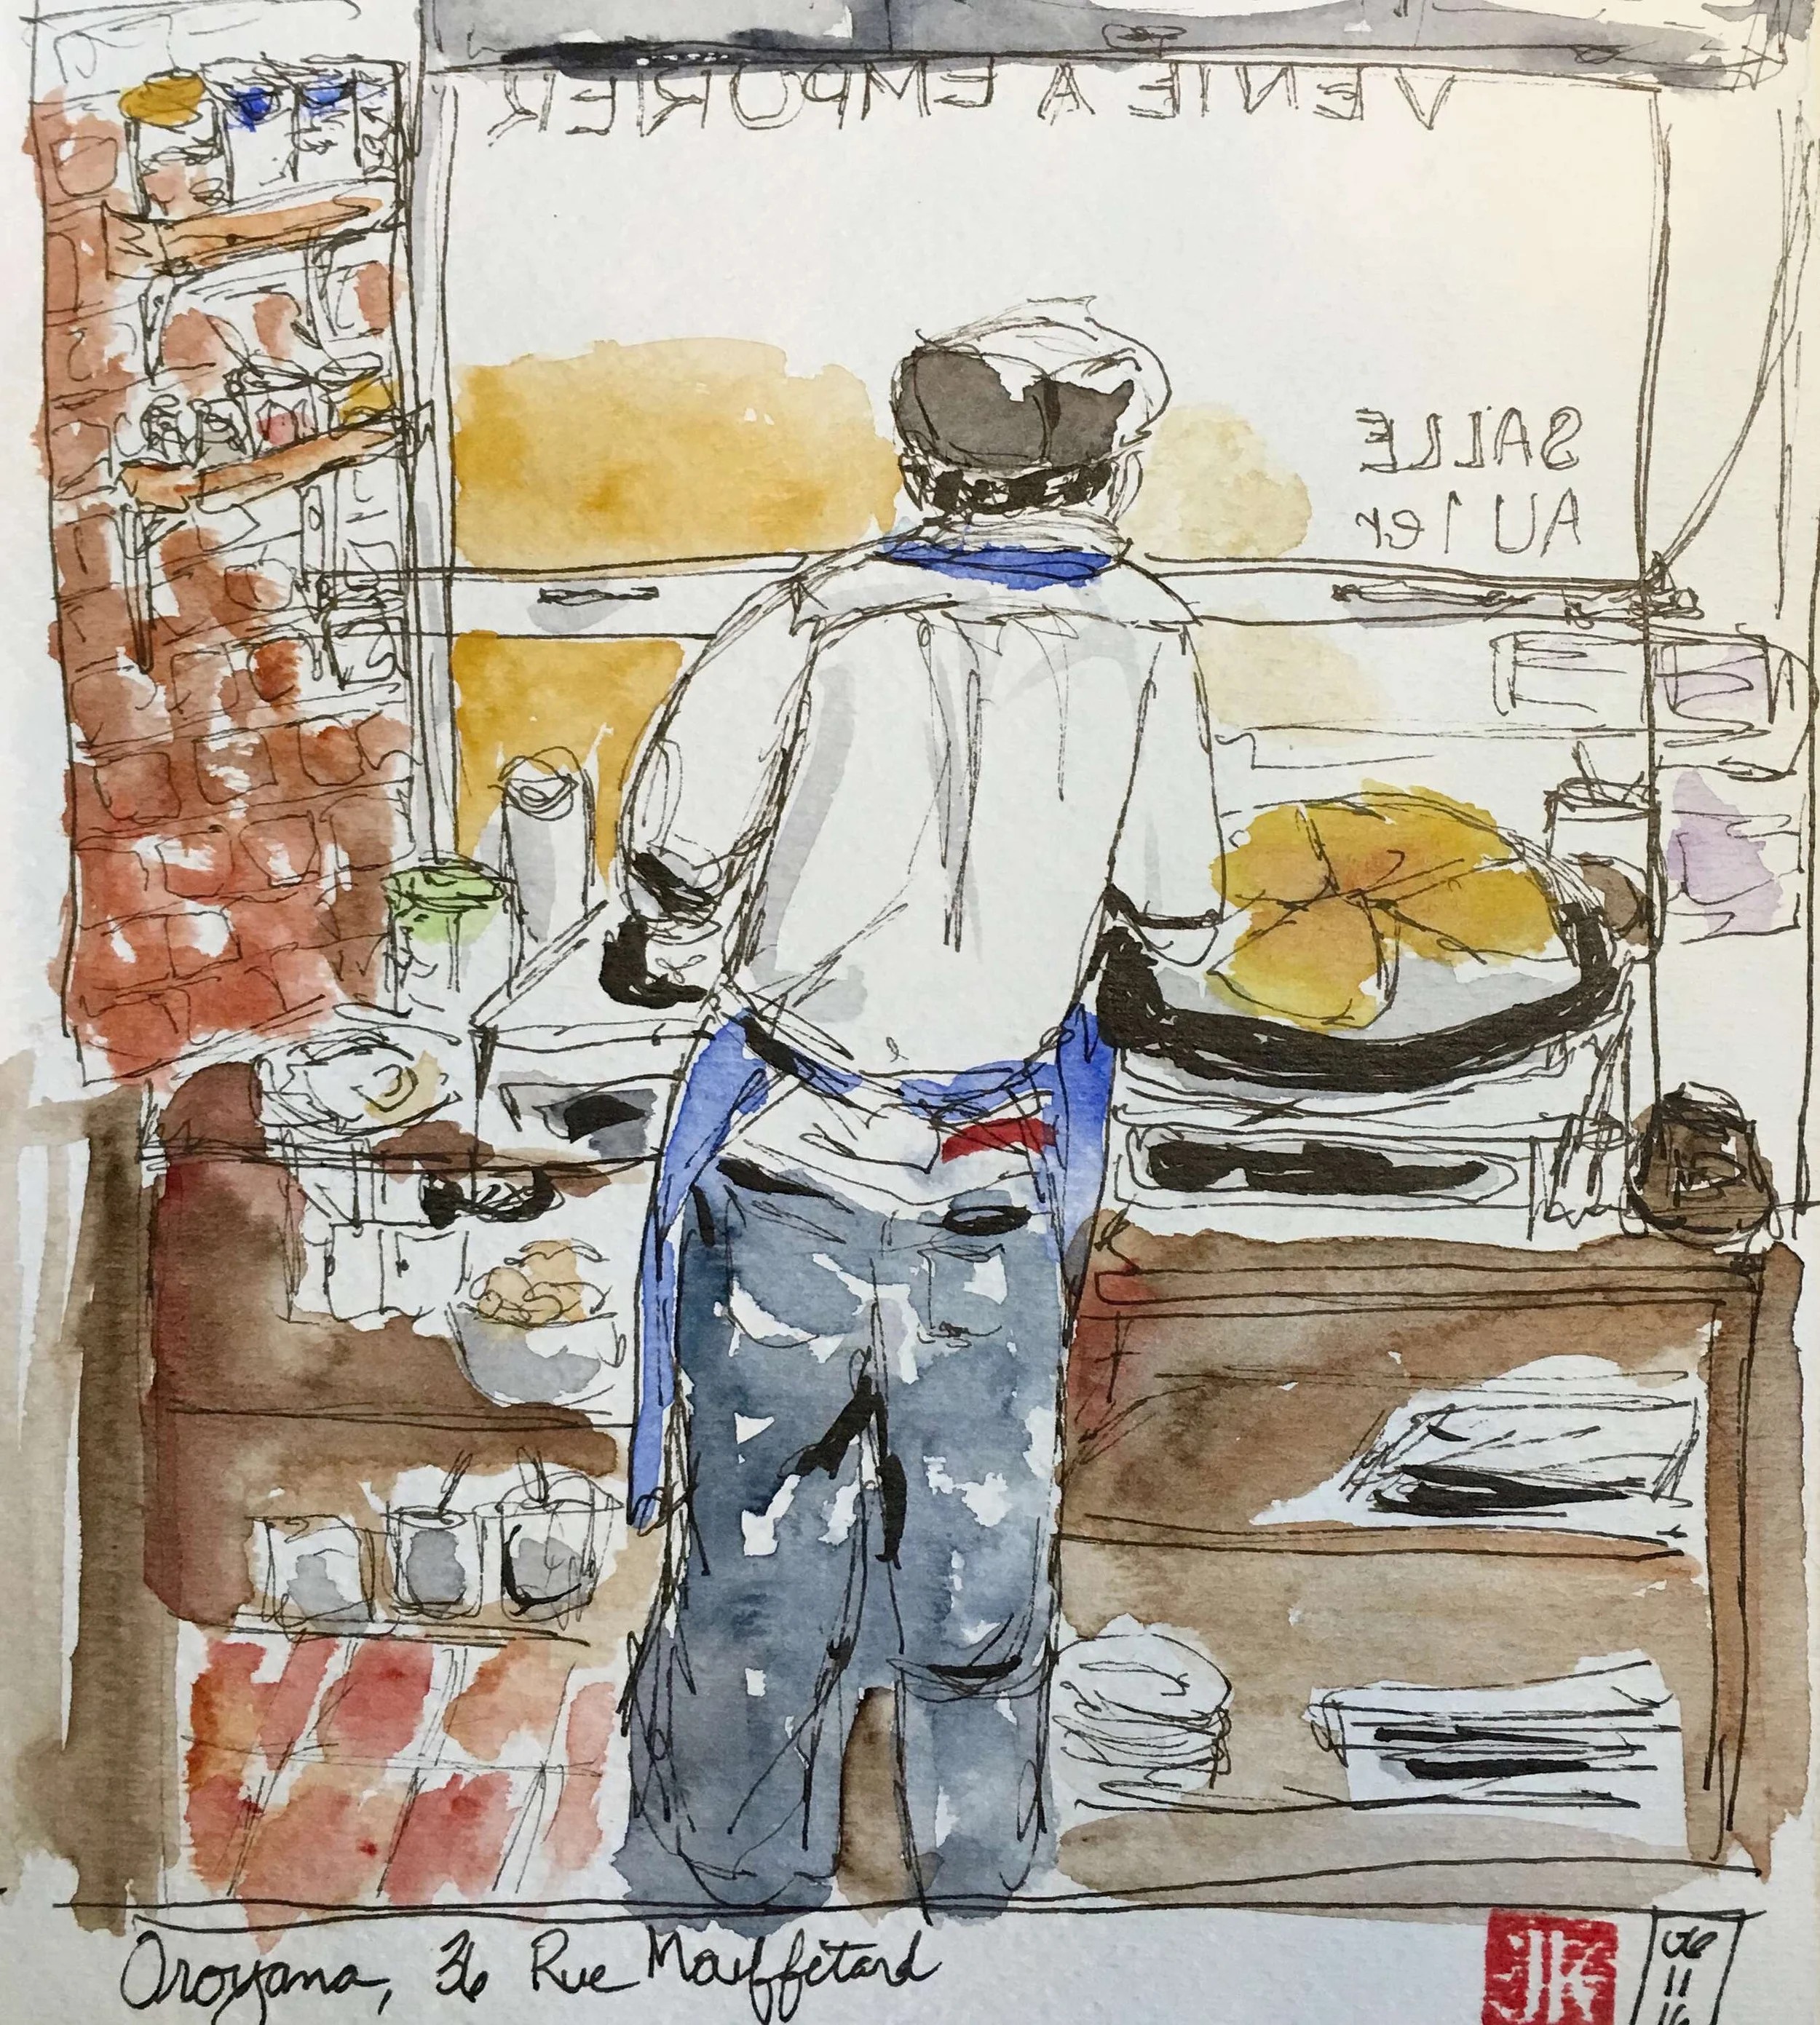 VENTE A EMPORTER
SALLE
AU 1er
Oroyana, 36 Rue Mouffetard
JK
06
11
16